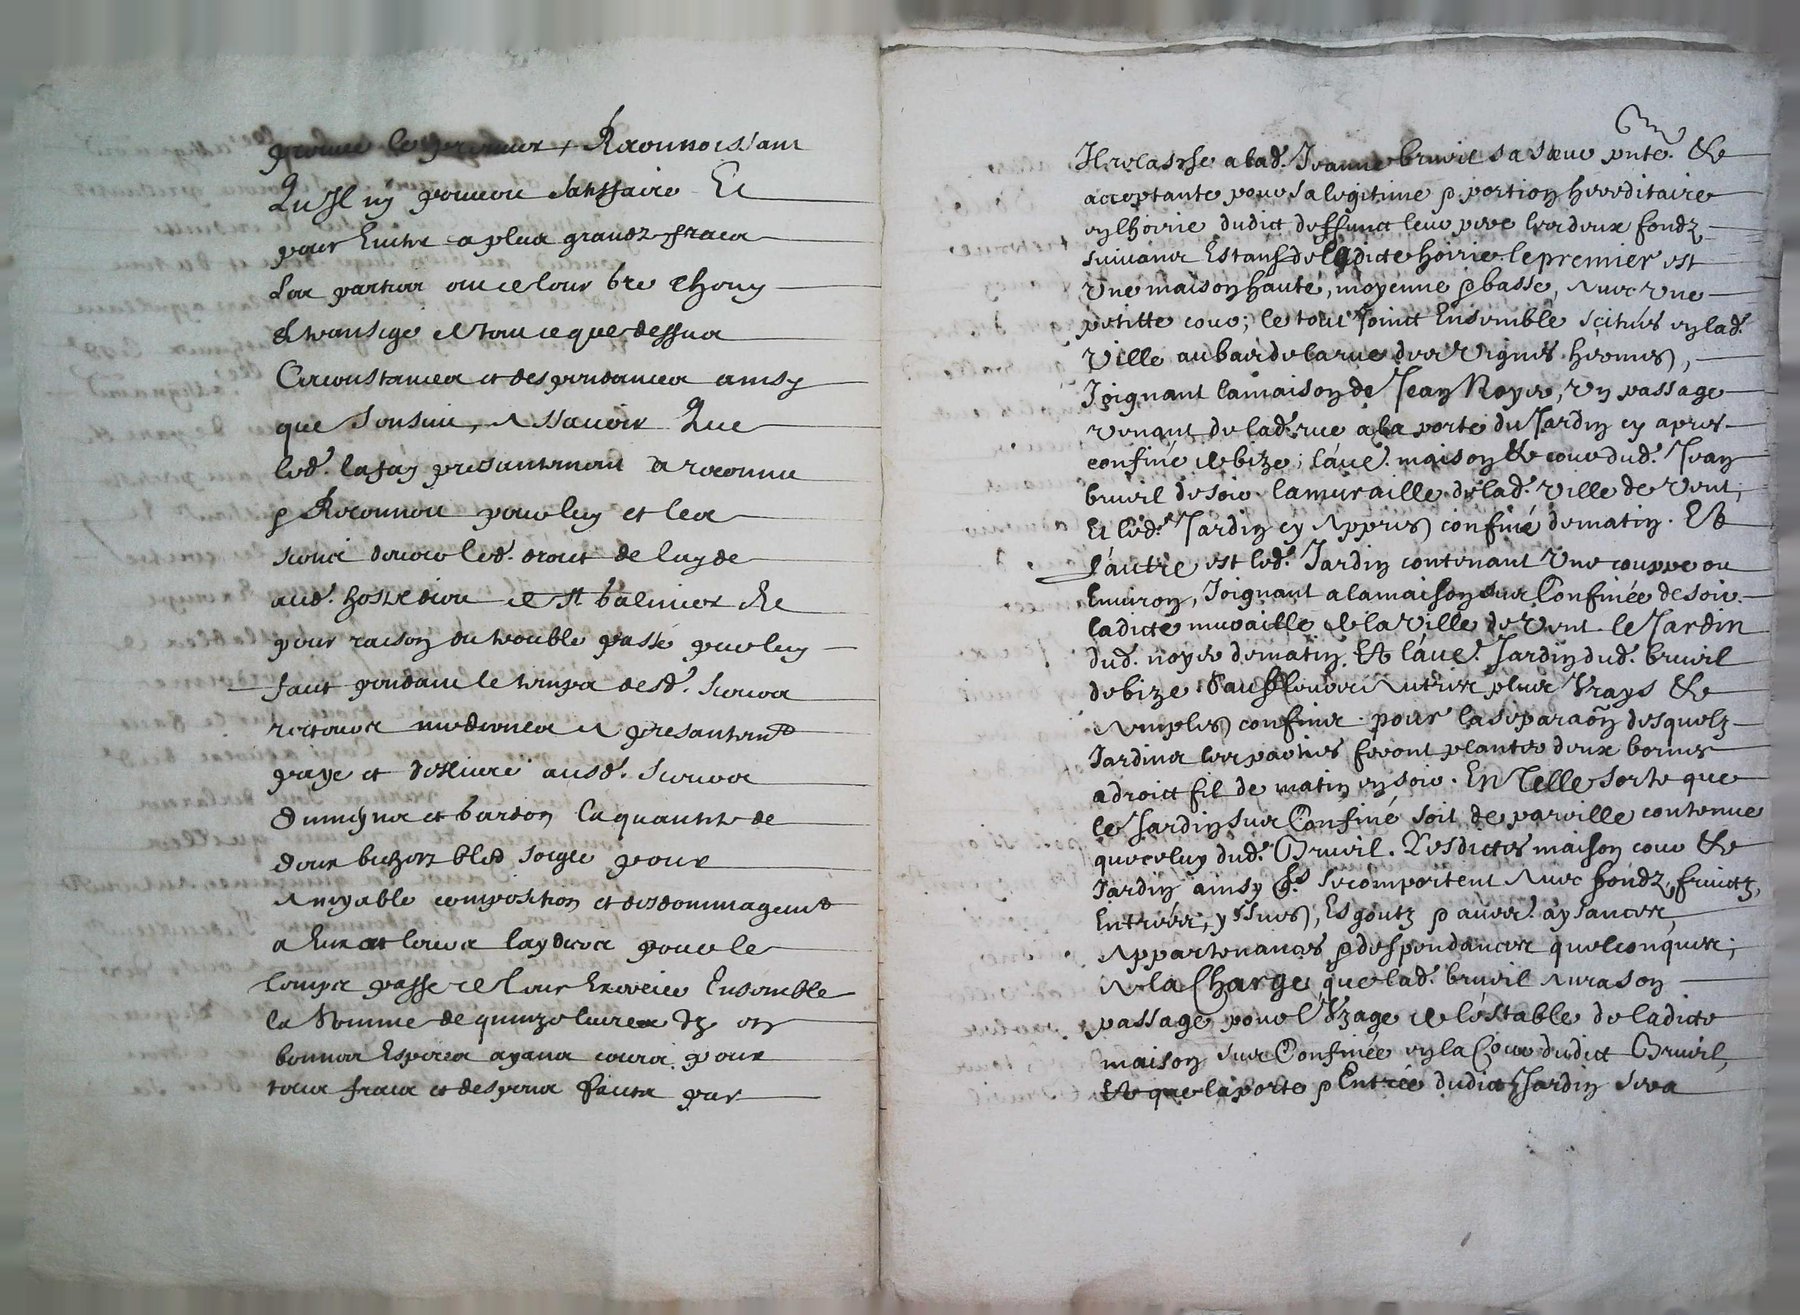 le premier, Reconnoissant
Qu Jl ny pouvoir Satisffaire Et
pour Euiter a plus grandz fraiz
Les parties ont ce Jour bre Chouy
et transige et tout ce que dessus
Circonstances et despendances ainsy
que Sensuit, Assauoir Que
led. lafay presantement a reconnu
& Reconnoit pour luy et les
siens deuoir led. droit de luyde
aud. hostel dieu et St balmier Et
pour raison du trouble passé par luy
faict pendant le temps desd. sieurs
recteurs modernes A presantemt
payé et desliuré ausd. sieurs
et bardon la quantite de
deux bichetz bled soigle pour
Amyable composition et desdommagemt
a Eux et leurs laydiers pour le
temps passé et leur Exercice Ensemble
la Somme de quinze liures dz en
bonnes Especes ayans cours pour
tous fraiz et despens faitz par
Jl relasche a lad. Jeanne bruil sa sœur pnte. Et
acceptante pour sa legitime & portion hereditaire
en lhoirie dudict deffunct leur pere les deux fondz
suiuans Estans de ladicte hoirie. le premier est
Vne maison haute, moyenne & basse, Auec Vne
petitte cour; le tout Joinct Ensemble scitués en lad.
Ville au bas de la rue des Vignes hermes,
Joignant la maison de Jean Noyer, Vn passage
venant de lad. rue a la porte du Jardin cy apres
confiné de bize; l'aue. maison Et cour dud. Jean
bruil de soir. la muraille de lad. Ville de Vent;
Et led. Jardin cy Appres confiné de matin. Et
l'autre est led. Jardin contenant Vne couppe ou
Enuiron, Joignant a la maison sus Confinée de soir.
ladicte muraille de la Ville de Vent. le Jardin
dud. noyer de matin Et l'aue. Jardin dud. bruil
de bize. Sauf leurs Autres plus Vrays Et
Amples confins. pour la separaõn desquelz
Jardins les parties feront planter deux bornes
a droict fil de matin en soir. En Telle sorte que
le Jardin sus Confiné soit de pareille contenue
que celuy dud. Bruil. Lesdictes maison cour Et
Jardin ainsy qls se comportent Auec fondz, fruictz,
Entrées, yssues, Esgoutz & auer. aysances,
Appartenances & despendances quelconques;
A la Charge que lad. bruil Aura son
passage pour l'Vzage de l'estable de ladicte
maison sus Confinée en la Cour dudict Bruil,
Et que la porte & Entrée dudict Jardin sera